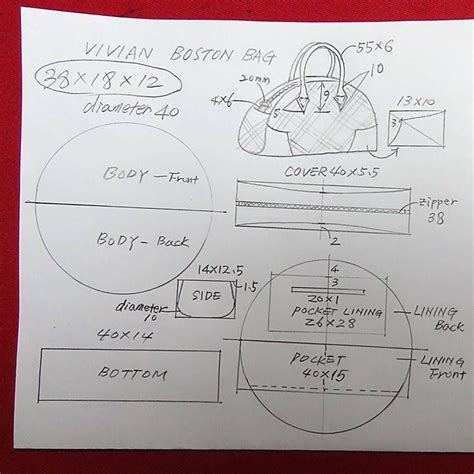 VIVIAN BOSTON BAG
38×18×12
diameter 40
55×6
20mm
10
4×6
5
9
13×10
3
COVER 40×5.5
BODY - Front
BODY - Back
zipper
38
2
14×12.5
1.5
SIDE
diameter
10
4
3
20×1
POCKET LINING
26×28
LINING
Back
40×14
BOTTOM
POCKET
40×15
LINING
Front